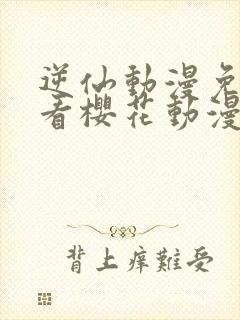 逆仙動漫免
看櫻花動漫
背上痒難受